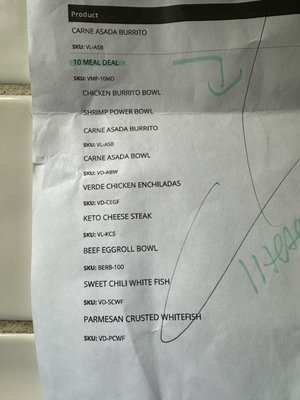 Product
CARNE ASADA BURRITO
SKU: VL-ASB
10 MEAL DEAL
SKU: VMP-10MD
CHICKEN BURRITO BOWL
SHRIMP POWER BOWL
CARNE ASADA BURRITO
SKU: VL-ASB
CARNE ASADA BOWL
SKU: VD-ABW
VERDE CHICKEN ENCHILADAS
SKU: VD-CEGF
KETO CHEESE STEAK
SKU: VL-KCS
BEEF EGGROLL BOWL
SKU: BERB-100
SWEET CHILI WHITE FISH
SKU: VD-SCWF
PARMESAN CRUSTED WHITEFISH
SKU: VD-PCWF